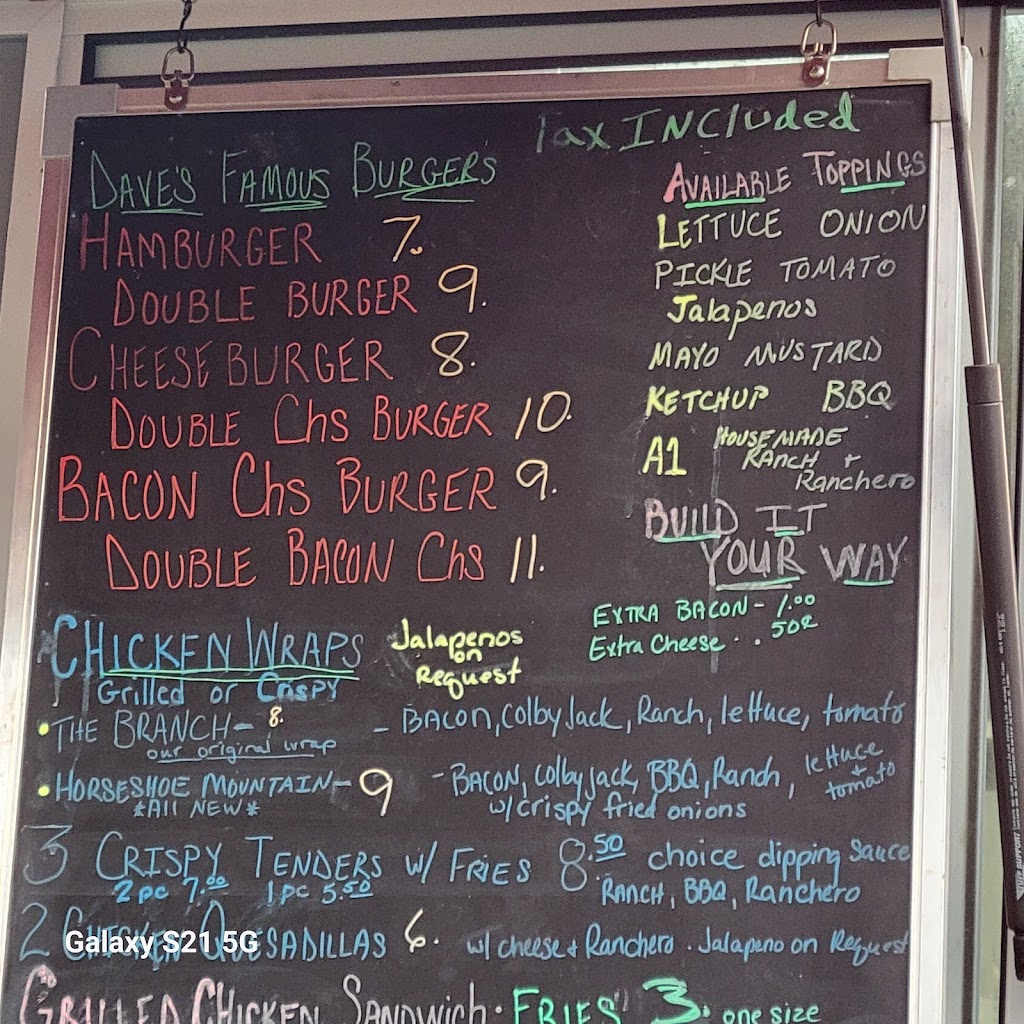 Tax INCluded
DAVE'S FAMOUS BURGER'S
HAMBURGER 7.
DOUBLE BURGER 9.
CHEESEBURGER 8.
DOUBLE Chs BURGER 10.
BACON Chs BURGER 9.
DOUBLE BACON Chs 11.
AVAILABLE TOPPINGS
LETTUCE ONION
PICKLE TOMATO
Jalapenos
MAYO MUSTARD
KETCHUP BBQ
A1 HOUSEMADE
RANCH +
Ranchero
BUILD IT
YOUR WAY
EXTRA BACON - 1.00
Extra Cheese . . 50¢
CHICKEN WRAPS
Grilled or Crispy
Jalapenos
on
Request
• THE BRANCH - 8. - BACON, Colby Jack, Ranch, lettuce, tomato
our original wrap
• HORSESHOE MOUNTAIN - 9 - BACON, Colby jack, BBQ, Ranch, lettuce + tomato
*All NEW* w/crispy fried onions
3 CRISPY TENDERS w/ FRIES 8.50 choice dipping sauce
2 pc 7.00 1 pc 5.50 RANCH, BBQ, Ranchero
2 CHICKEN QUESADILLAS 6. w/ cheese + Ranchero . Jalapeno on Request
Galaxy S21 5G
GRILLED CHICKEN SANDWICH . FRIES 3. one size